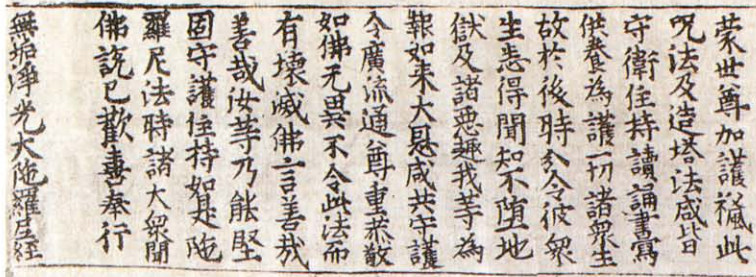 蒙世尊加護禠此
呪法及造塔法咸皆
守衛住持讀誦書寫
供養為護一切諸衆生
故於後時分令彼衆
生悉得聞知不堕地
獄及諸惡趣我等為
報如来大恩咸共守護
令廣流通尊重恭敬
如佛无異不令此法而
有壞滅佛言善哉
善哉汝等乃能堅
固守護住持如是陁
羅尼法時諸大衆聞
佛說已歡喜奉行
無垢淨光大陁羅尼経